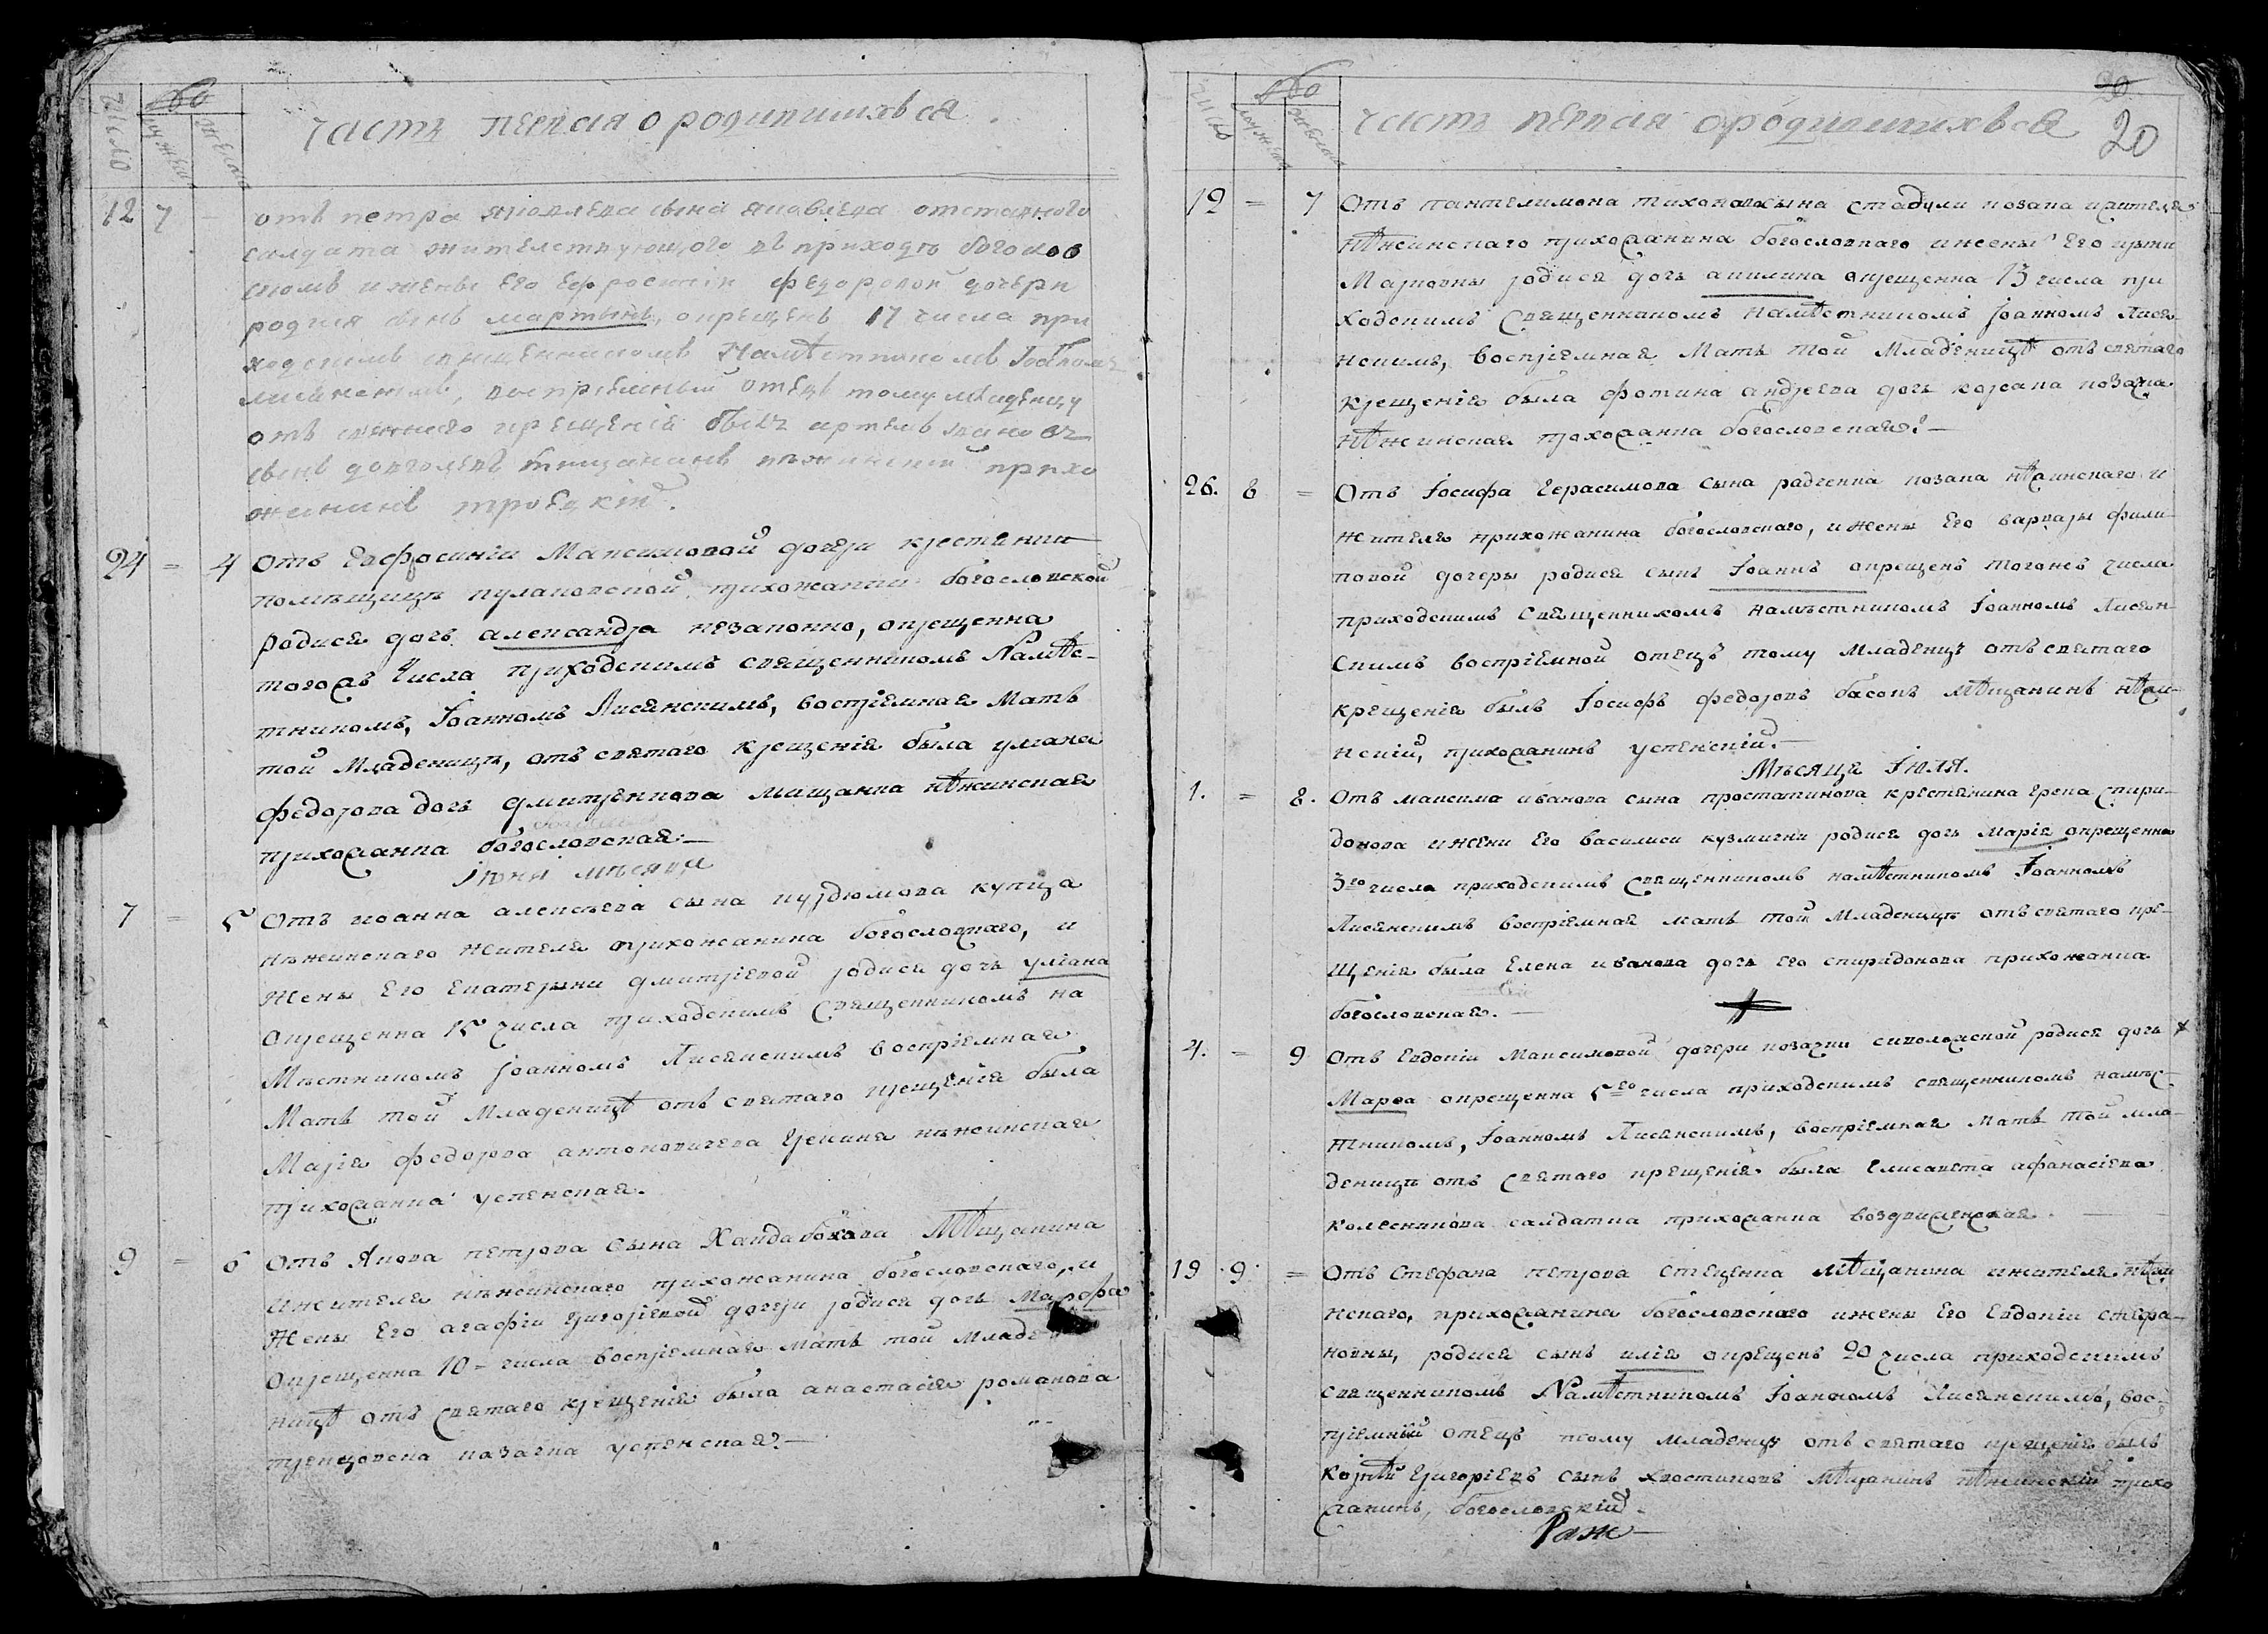 число
мужеска
женска
часть первая о родившихъся
12 7 отъ петра яковлева сына яковлева отставного
солдата жителствующого въ приходѣ богослов
скомъ и жены его Ефросинїи федоровой дочери
родися сынъ мартынъ, окрещенъ 17 числа при
ходскимъ священникомъ Намѣстникомъ Iоанномъ
лисянскимъ, воспрiемный отецъ тому младенцу
отъ святаго крещенiя былъ артемъ
сынъ мещанинъ нѣжинскiй прихо
жанинъ троецкiй.
24 = 4 Отъ Евфросинiи Максимовой дочери крестянки
помѣщицѣ кулаковской прихожанки богословской
родися дочь александра незаконно, окрещенна
тогожъ числа приходскимъ священникомъ Намѣс-
тникомъ, Iоанномъ Лисянскимъ, воспрiемная Мать
той Младеницѣ, отъ святаго крещенiя была улиана
федорова дочь дмитренкова мищанка нѣжинская
прихожанка богословская.—
Iюня мѣсяца
7 = 5 Отъ иоанна алексѣева сына курдюмова купца
нѣжинскаго жителя прихожанина богословскаго, и
Жены Его Екатерыни дмитрiевой родися дочь улiана
окрещенна 15 числа приходскимъ Священникомъ На
Мѣстникомъ Iоанномъ Лисянскимъ воспрiемная
Мать той Младеницѣ отъ святаго крещенiя была
Марiя федорова антоновичева Грекиня нѣжинская
прихожанка успенская.
9 = 6 Отъ Якова петрова Сына Хандабокова Мѣщанина
и жителя нѣжинскаго прихожанина богословскаго, и
Жены Его агафiи григорiевой дочери родися дочь Марфа
окрещенна 10 = числа воспрiемная мать той Младе
ницѣ отъ святаго крещенiя была анастасiя романова
козачка успенская.—
число
мужеска
женска
часть первая о родившихъся 20
12 = 7 Отъ пантелимона тихонова сына козака и жителя
нѣжинскаго прихожанина богословскаго и жены Его
Марковны родися дочь акилина окрещенна 13 числа при
ходскимъ Священникомъ намѣстникомъ Iоанномъ Лися-
нскимъ, воспрiемная Мать той Младеницѣ отъ святаго
крещенiя была Фотина андреева дочь козачка
нѣжинская прихожанка богословская.—
26. 8 = Отъ Iосифа Герасимова сына радченка козака нѣжинскаго и
жителя прихожанина богословскаго, и жены Его варвары фили-
повой дочеры родися сынъ Iоаннъ окрещенъ тогожъ числа
приходскимъ Священникомъ намѣстникомъ Iоанномъ Лисян-
скимъ воспрiемной отецъ тому Младенцѣ отъ святаго
крещенiя былъ Iосифъ федоровъ басокъ мѣщанинъ нѣжи-
нскiй, прихожанинъ успенскiй.—
Мѣсяца Iюля.
1. = 8. Отъ максима иванова сына простатинова крестянина грека спири-
донова и жени его василиси кузмичны родися дочь марiя окрещенна
3го числа приходскимъ Священникомъ намѣстникомъ Iоанномъ
Лисянскимъ воспрiемная мать той Младеницѣ отъ святаго кре-
щенiя была Елена иванова дочь его спиридонова прихожанка
богословская.—
4. = 9 Отъ Евдокiи Максимовой дочери козачки родися дочь
Марѳа окрещенна 5го числа приходскимъ священникомъ намѣс-
тникомъ, Iоанномъ Лисянскимъ, воспрiемная мать той мла-
деницѣ отъ святаго крещенiя была Елисавета афанасiева
колесникова салдатка прихожанка воздвиженская.
19 9 = Отъ Стефана петрова стеценка мѣщанина и жителя нѣжи
нскаго, прихожанина богословскаго и жены Его Евдокiи стефа-
новны, родися сынъ илiя окрещенъ 20 числа приходскимъ
священникомъ Намѣстникомъ Iоанномъ Лисянскимъ, вос-
прiемный отецъ тому младенцѣ отъ святаго крещенiя былъ
Корнѣй Григорiевъ сынъ хвостиковъ мѣщанинъ нѣжинскiй прихо
жанинъ, богословскiй.